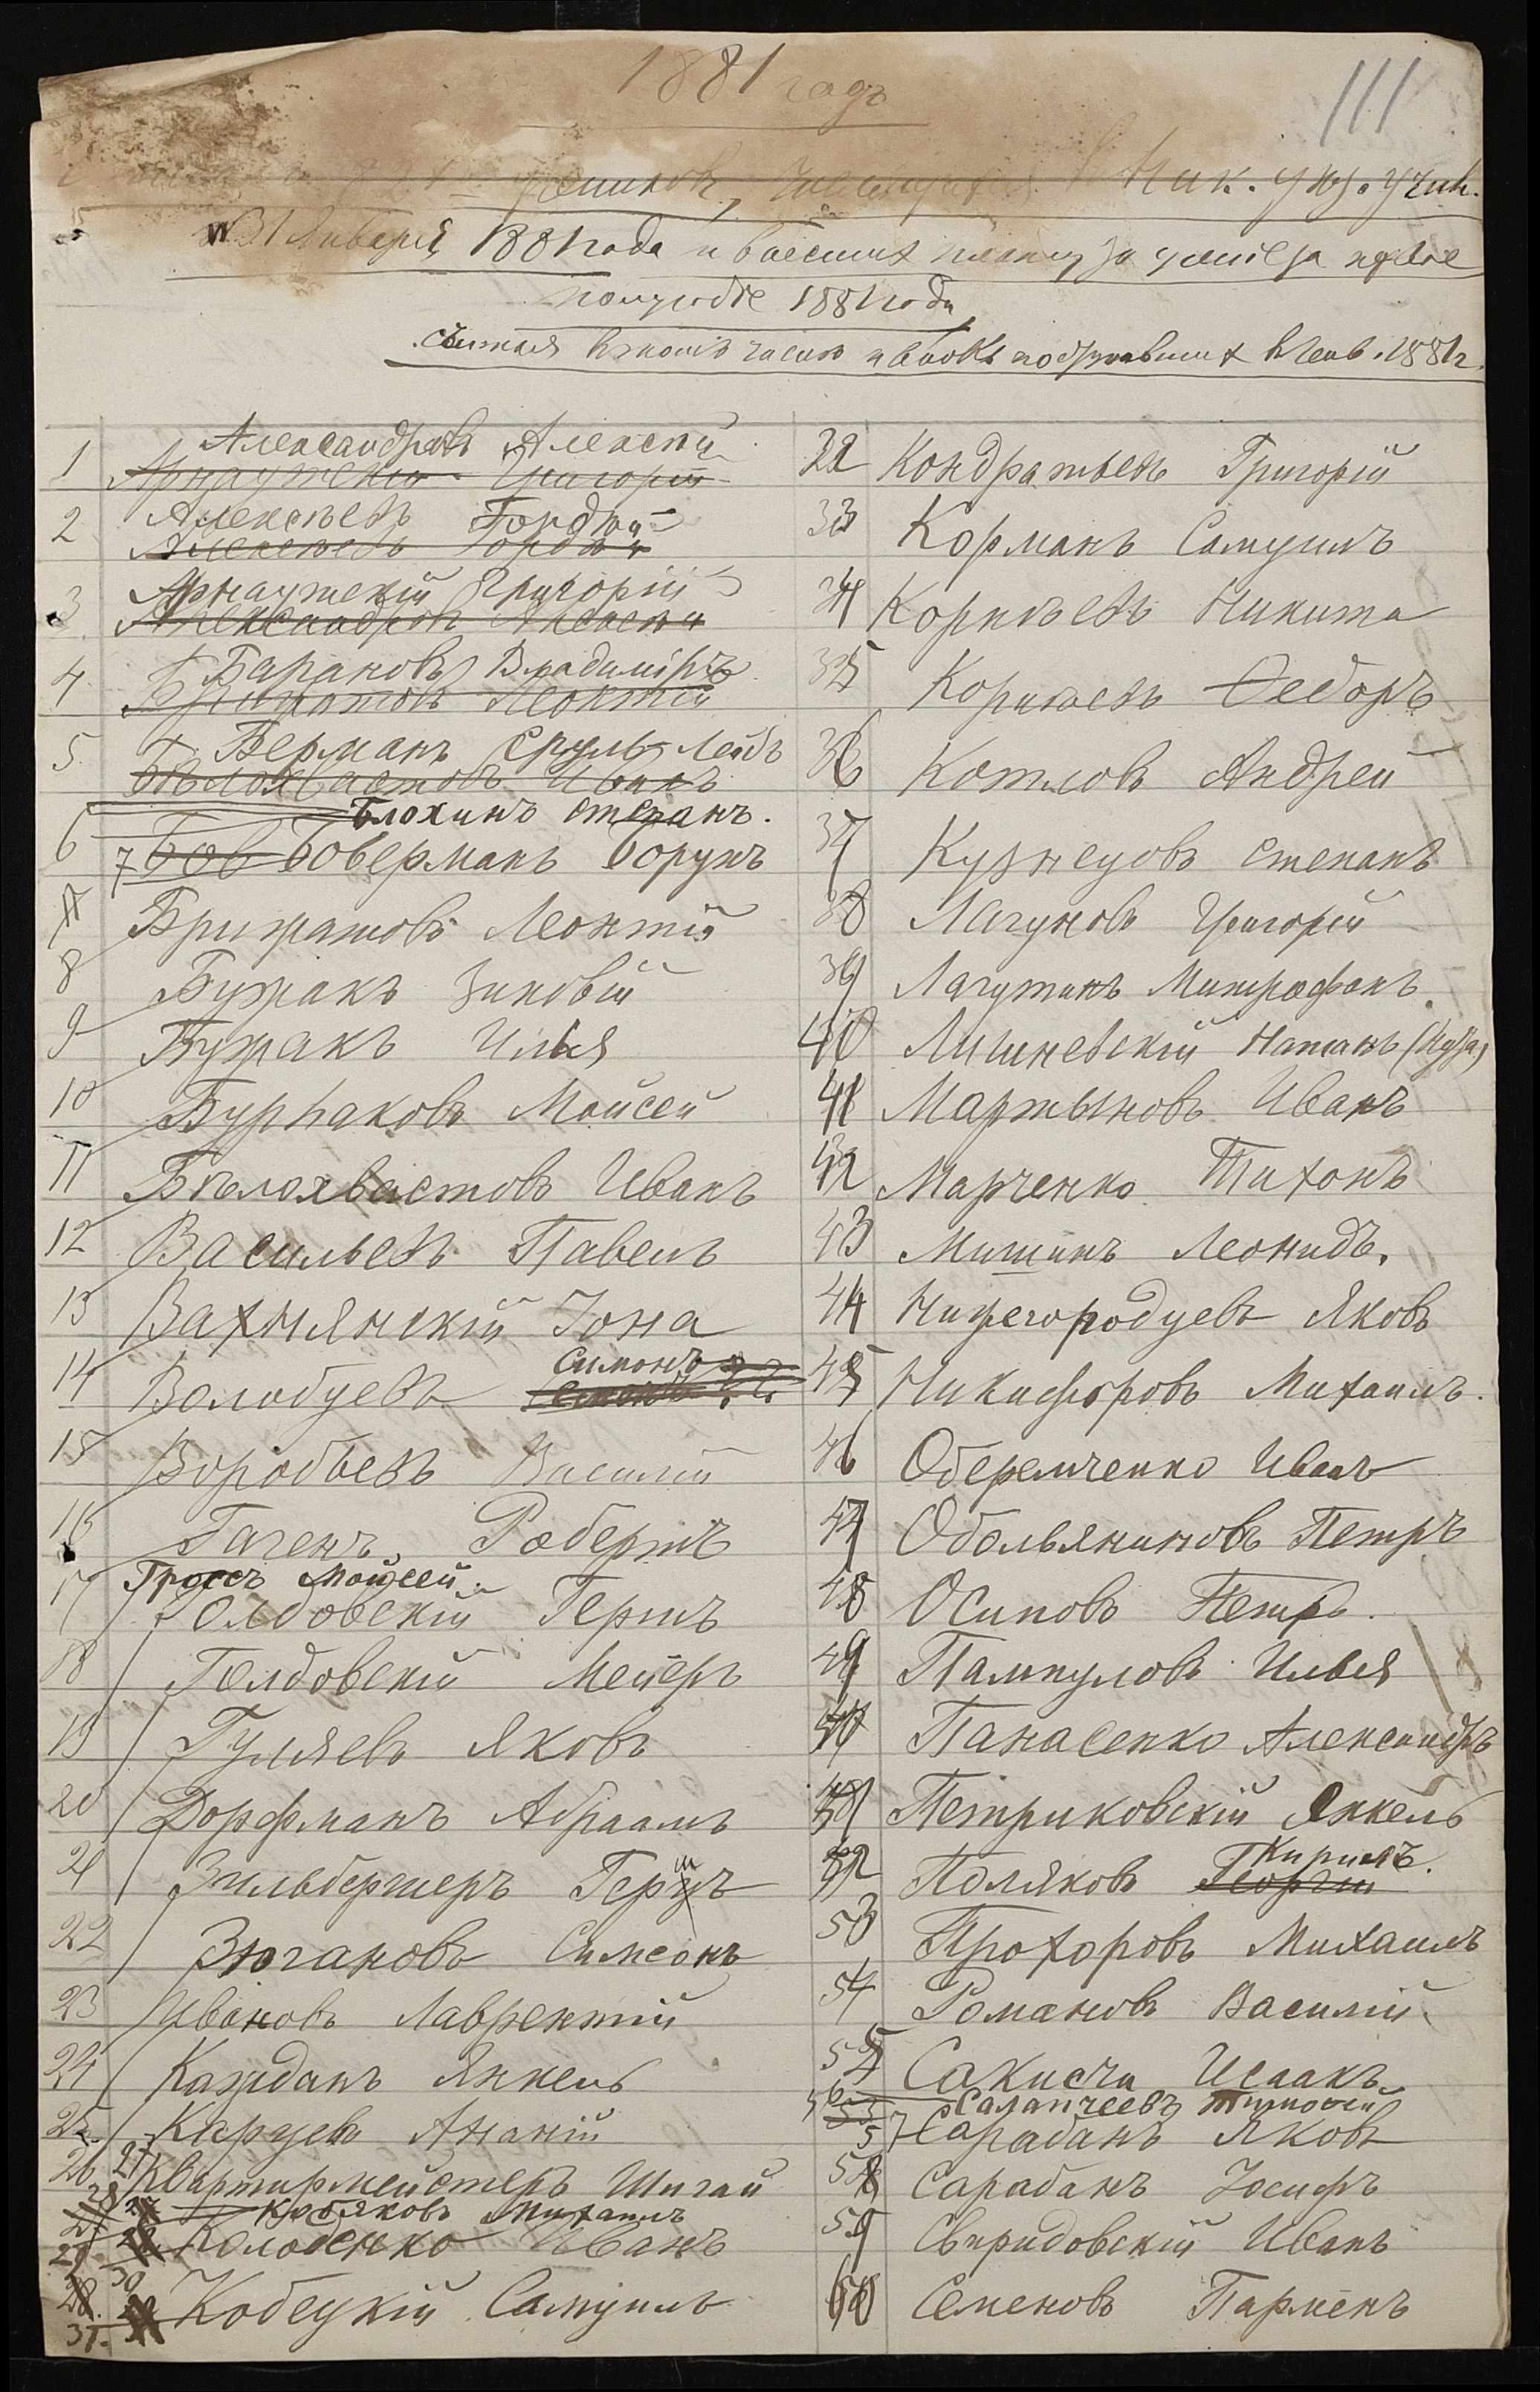 1881 годъ
111
учениковъ, Ник. уѣз. учил.
Января 1881 года и внесших плату за ученіе за первое
полугодіе 1881 года,
считая въ томъ числѣ и вновь поступивших въ Генв. 1881 г.
1 Александровъ Алексѣй
Арнаутскій Григорій
2 Алексѣевъ Гордѣй
Алексѣевъ Гордѣй
3 Арнаутскій Григорій
Александровъ Алексѣй
4 Барановъ Владиміръ
Брижатовъ Леонтій
5 Берманъ Сруль-Лейбъ
Бѣлохвастовъ Иванъ
6 Блохинъ Степанъ.
7 Бов Боверманъ Борухъ
Брижатовъ Леонтій
8 Бужакъ Зиновій
9 Бужакъ Илья
10 Бурнаковъ Мойсей
11 Бѣлохвастовъ Иванъ
12 Васильевъ Павелъ
13 Вахнянскій Іона
Симонъ
14 Волобуевъ
15 Воробьевъ Василій
16 Гагенъ Робертъ
Гроссъ Мойсей.
17 Голдовскій Гершъ
18 Голдовскій Мейеръ
19 Гуляевъ Яковъ
20 Дорфманъ Абраамъ
21 Зильбершеръ Герцъ
22 Зюгановъ Симеонъ
23 Ивановъ Лаврентій
24 Кажданъ Янкель
25 Карцевъ Ананій
26 27 Квартирмейстеръ Шигай
28 Кобяковъ Михаилъ
29 Колобенко Иванъ
30
31. Кобецкій Самуилъ
32 Кондратьевъ Григорій
33 Корманъ Самуилъ
34 Корнѣевъ Никита
35 Корнѣевъ Федоръ
36 Котловъ Андрей
37 Кузнецовъ Степанъ
38 Лагуновъ Григорій
39 Лагутинъ Митрофанъ.
40 Лишневскій Натанъ
41 Мартыновъ Иванъ
42 Марченко Тихонъ
43 Мишинъ Леонидъ.
44 Нижегородцевъ Яковъ
45 Никифоровъ Михаилъ.
46 Оберемченко Иванъ
47 Обольяниновъ Петръ
48 Осиповъ Петръ.
49 Пампуловъ Илья
Панасенко Александръ
51 Петриковскій Янкель
Кириллъ.
52 Поляковъ Георгій
53 Прохоровъ Михаилъ
54 Романовъ Василій
55 Сакисчи Исаакъ
56 Салапчеевъ Тимофей
57 Сарабанъ Яковъ
58 Сарабанъ Іосифъ
59 Свиридовскій Иванъ
60 Семеновъ Парменъ